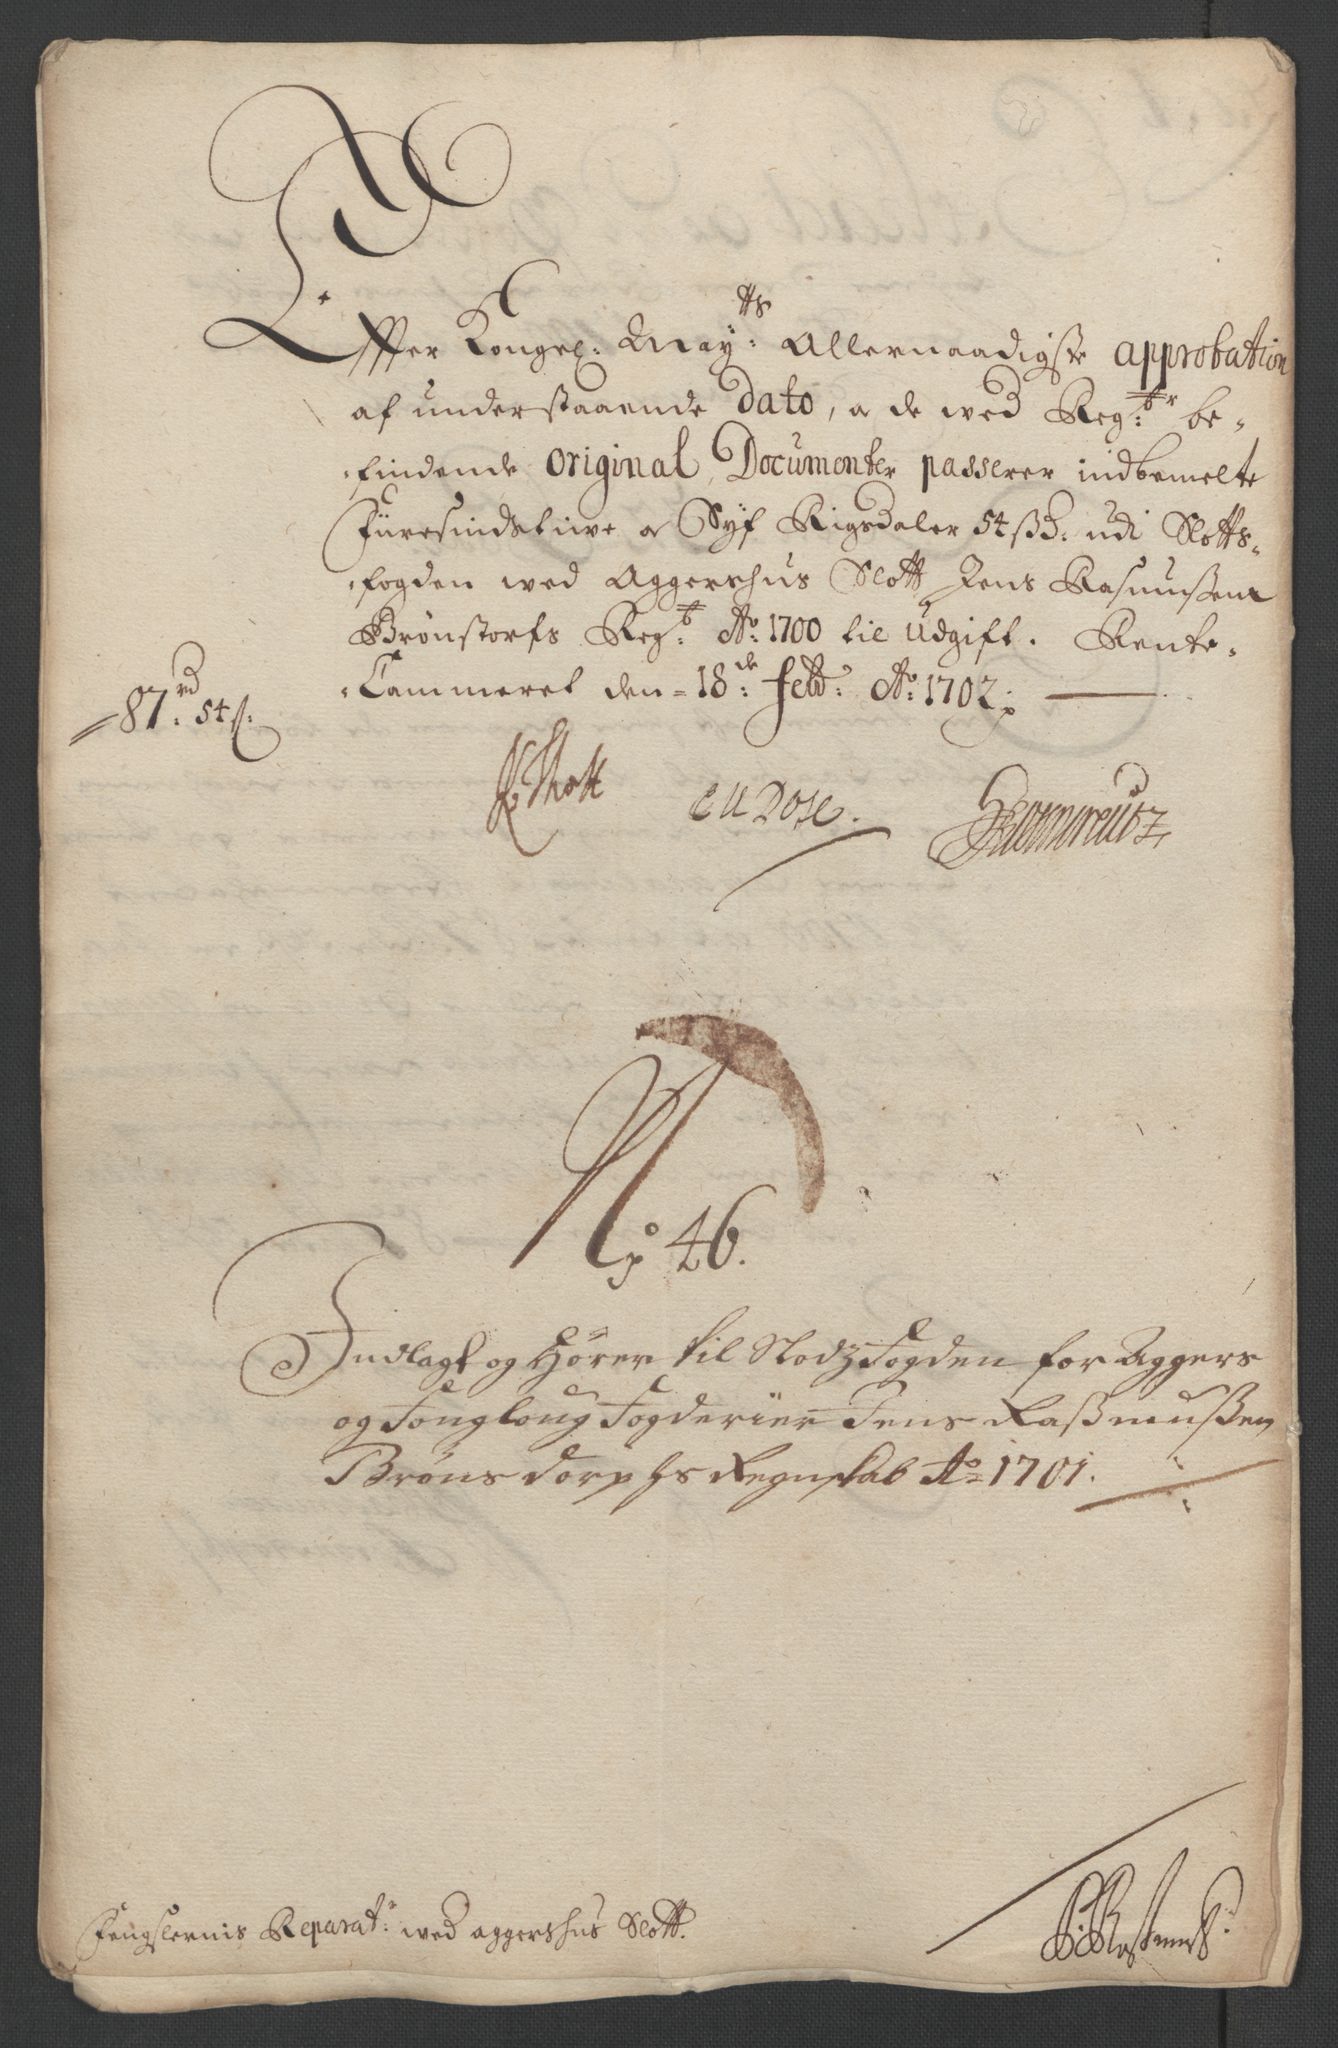 Effter Kongel: May:tts Allernaadigste approbation
af understaaende Dato, og de wed Reg:br be-
findende Original Documenter passerer indbemelte
Fiiresindstiuve og Syf Rigsdaler 54 ß d: udi Slotts-
fogden wed Aggershus Slott Jens Rasmusßens
Brønstorfs Reg:b Ao: 1700 til Udgift. Rente-
Cammeret den 18:de Feb: Ao: 1702
87 rd: 54 ß:
Thott CUDose. 
No 46.
Indlagt og Hører til Slodz Fogden for Aggers
og Fougderier Jens Raßmusßen
Brønsdorphs Regnskab Ao 1701.
Fengslernis Reparat: wed aggershus Slott.